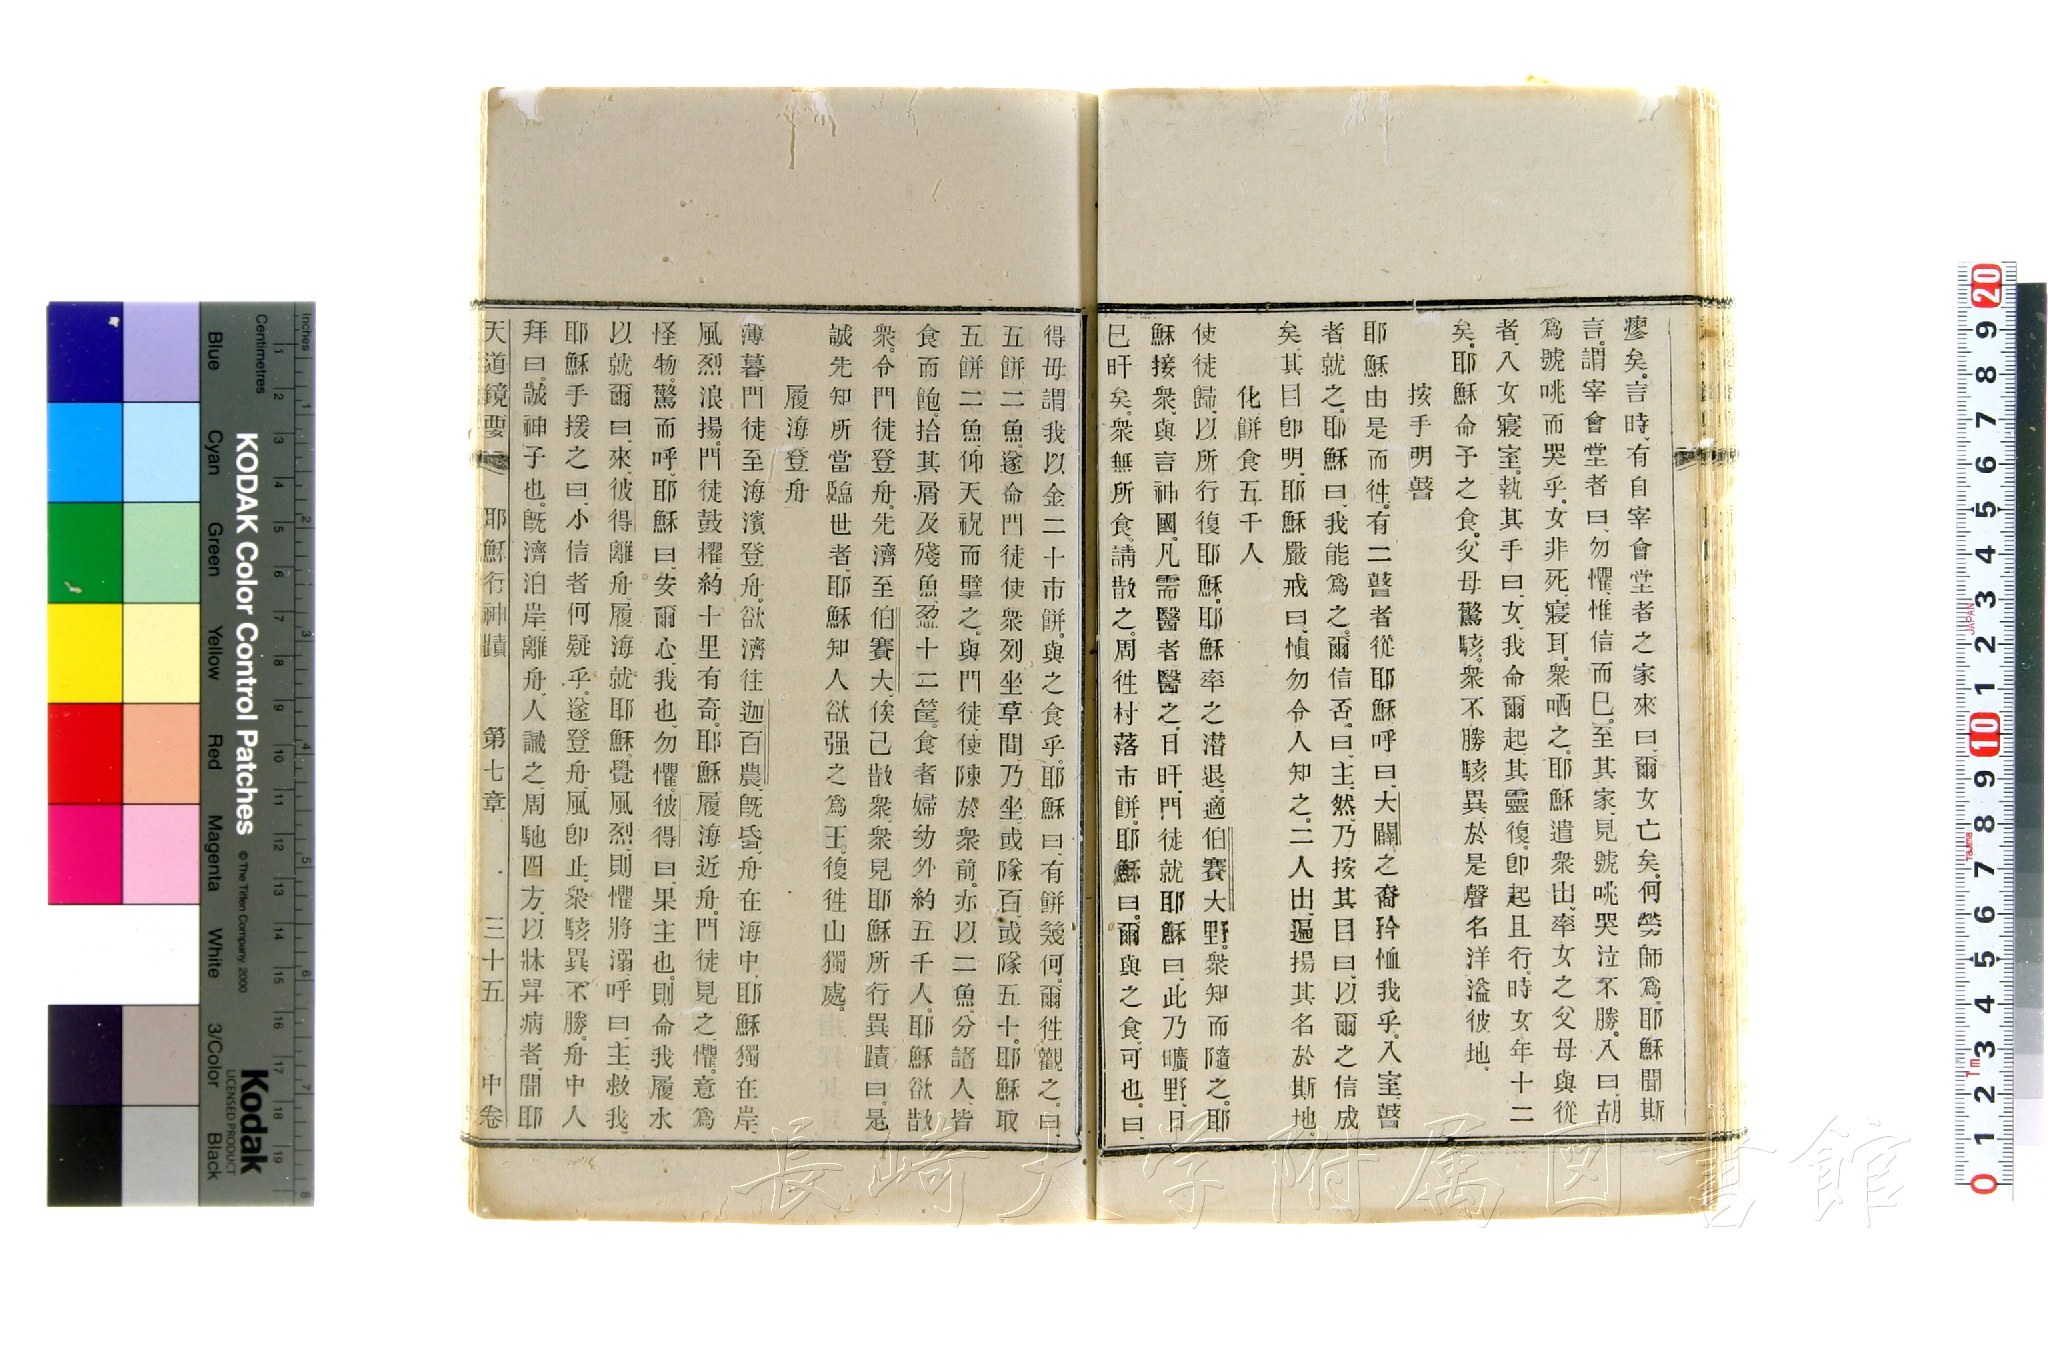 瘳矣。言時、有自宰會堂者之家來曰、爾女亡矣。何勞師爲、耶穌聞斯
言。謂宰會堂者曰、勿懼、惟信而已。至其家、見號咷哭泣不勝。入曰、胡
爲號咷而哭乎。女非死、寢耳。衆哂之。耶穌遣衆出、率女之父母與從
者、入女寢室。執其手曰、女、我命爾起、其靈復。卽起且行、時女年十二
矣。耶穌命予之食。父母驚駭。衆不勝駭異、於是聲名洋溢彼地、
按手明瞽
耶穌由是而徃。有二瞽者從耶穌、呼曰、大闢之裔、矜恤我乎。入室、瞽
者就之。耶穌曰、我能爲之。爾信否。曰、主、然。乃按其目曰、以爾之信成
矣。其目卽明、耶穌嚴戒曰、愼勿令人知之。二人出、遍揚其名於斯地。
化餅食五千人
使徒歸、以所行復耶穌。耶穌率之潛退、適伯賽大野。衆知而隨之。耶
穌接衆、與言神國。凡需醫者醫之。日旰、門徒就耶穌曰、此乃曠野、日
已旰矣。衆無所食。請散之。周徃村落市餅。耶穌曰。爾與之食、可也。曰、
得毋謂我以金二十市餅。與之食乎。耶穌曰、有餅幾何。爾徃觀之。曰、
五餅二魚。遂命門徒使衆列坐草間、乃坐或隊百、或隊五十。耶穌取
五餅二魚、仰天祝而擘之。與門徒、使陳於衆前。亦以二魚分諸人、皆
食而飽、拾其屑及殘魚、盈十二筐。食者婦幼外約五千人。耶穌欲散
衆。令門徒登舟。先濟至伯賽大、俟己散衆、衆見耶穌所行異蹟曰、是
誠先知所當臨世者、耶穌知人欲强之爲王、復徃山獨處。
履海登舟
薄暮、門徒至海濱登舟。欲濟往迦百農。旣昏、舟在海中、耶穌獨在岸、
風烈浪揚。門徒鼓櫂、約十里有奇。耶穌履海近舟。門徒見之懼。意爲
怪物。驚而呼、耶穌曰、安爾心、我也、勿懼。彼得曰、果主也。則命我履水
以就爾。曰、來、彼得離舟、履海就耶穌。覺風烈、則懼。將溺、呼曰、主、救我、
耶穌手援之曰、小信者何疑乎。遂登舟、風卽止、衆駭異不勝。舟中人
拜曰。誠神子也。旣濟、泊岸、離舟、人識之、周馳四方、以牀舁病者、聞耶
天道鏡要 耶穌行神蹟 第七章 三十五 中卷
KODAK Color Control Patches
© The Tiffen Company, 2000
Kodak
LICENSED PRODUCT
Inches
Centimetres
Blue Cyan Green Yellow Red Magenta White 3/Color Black
長崎大学附属図書館